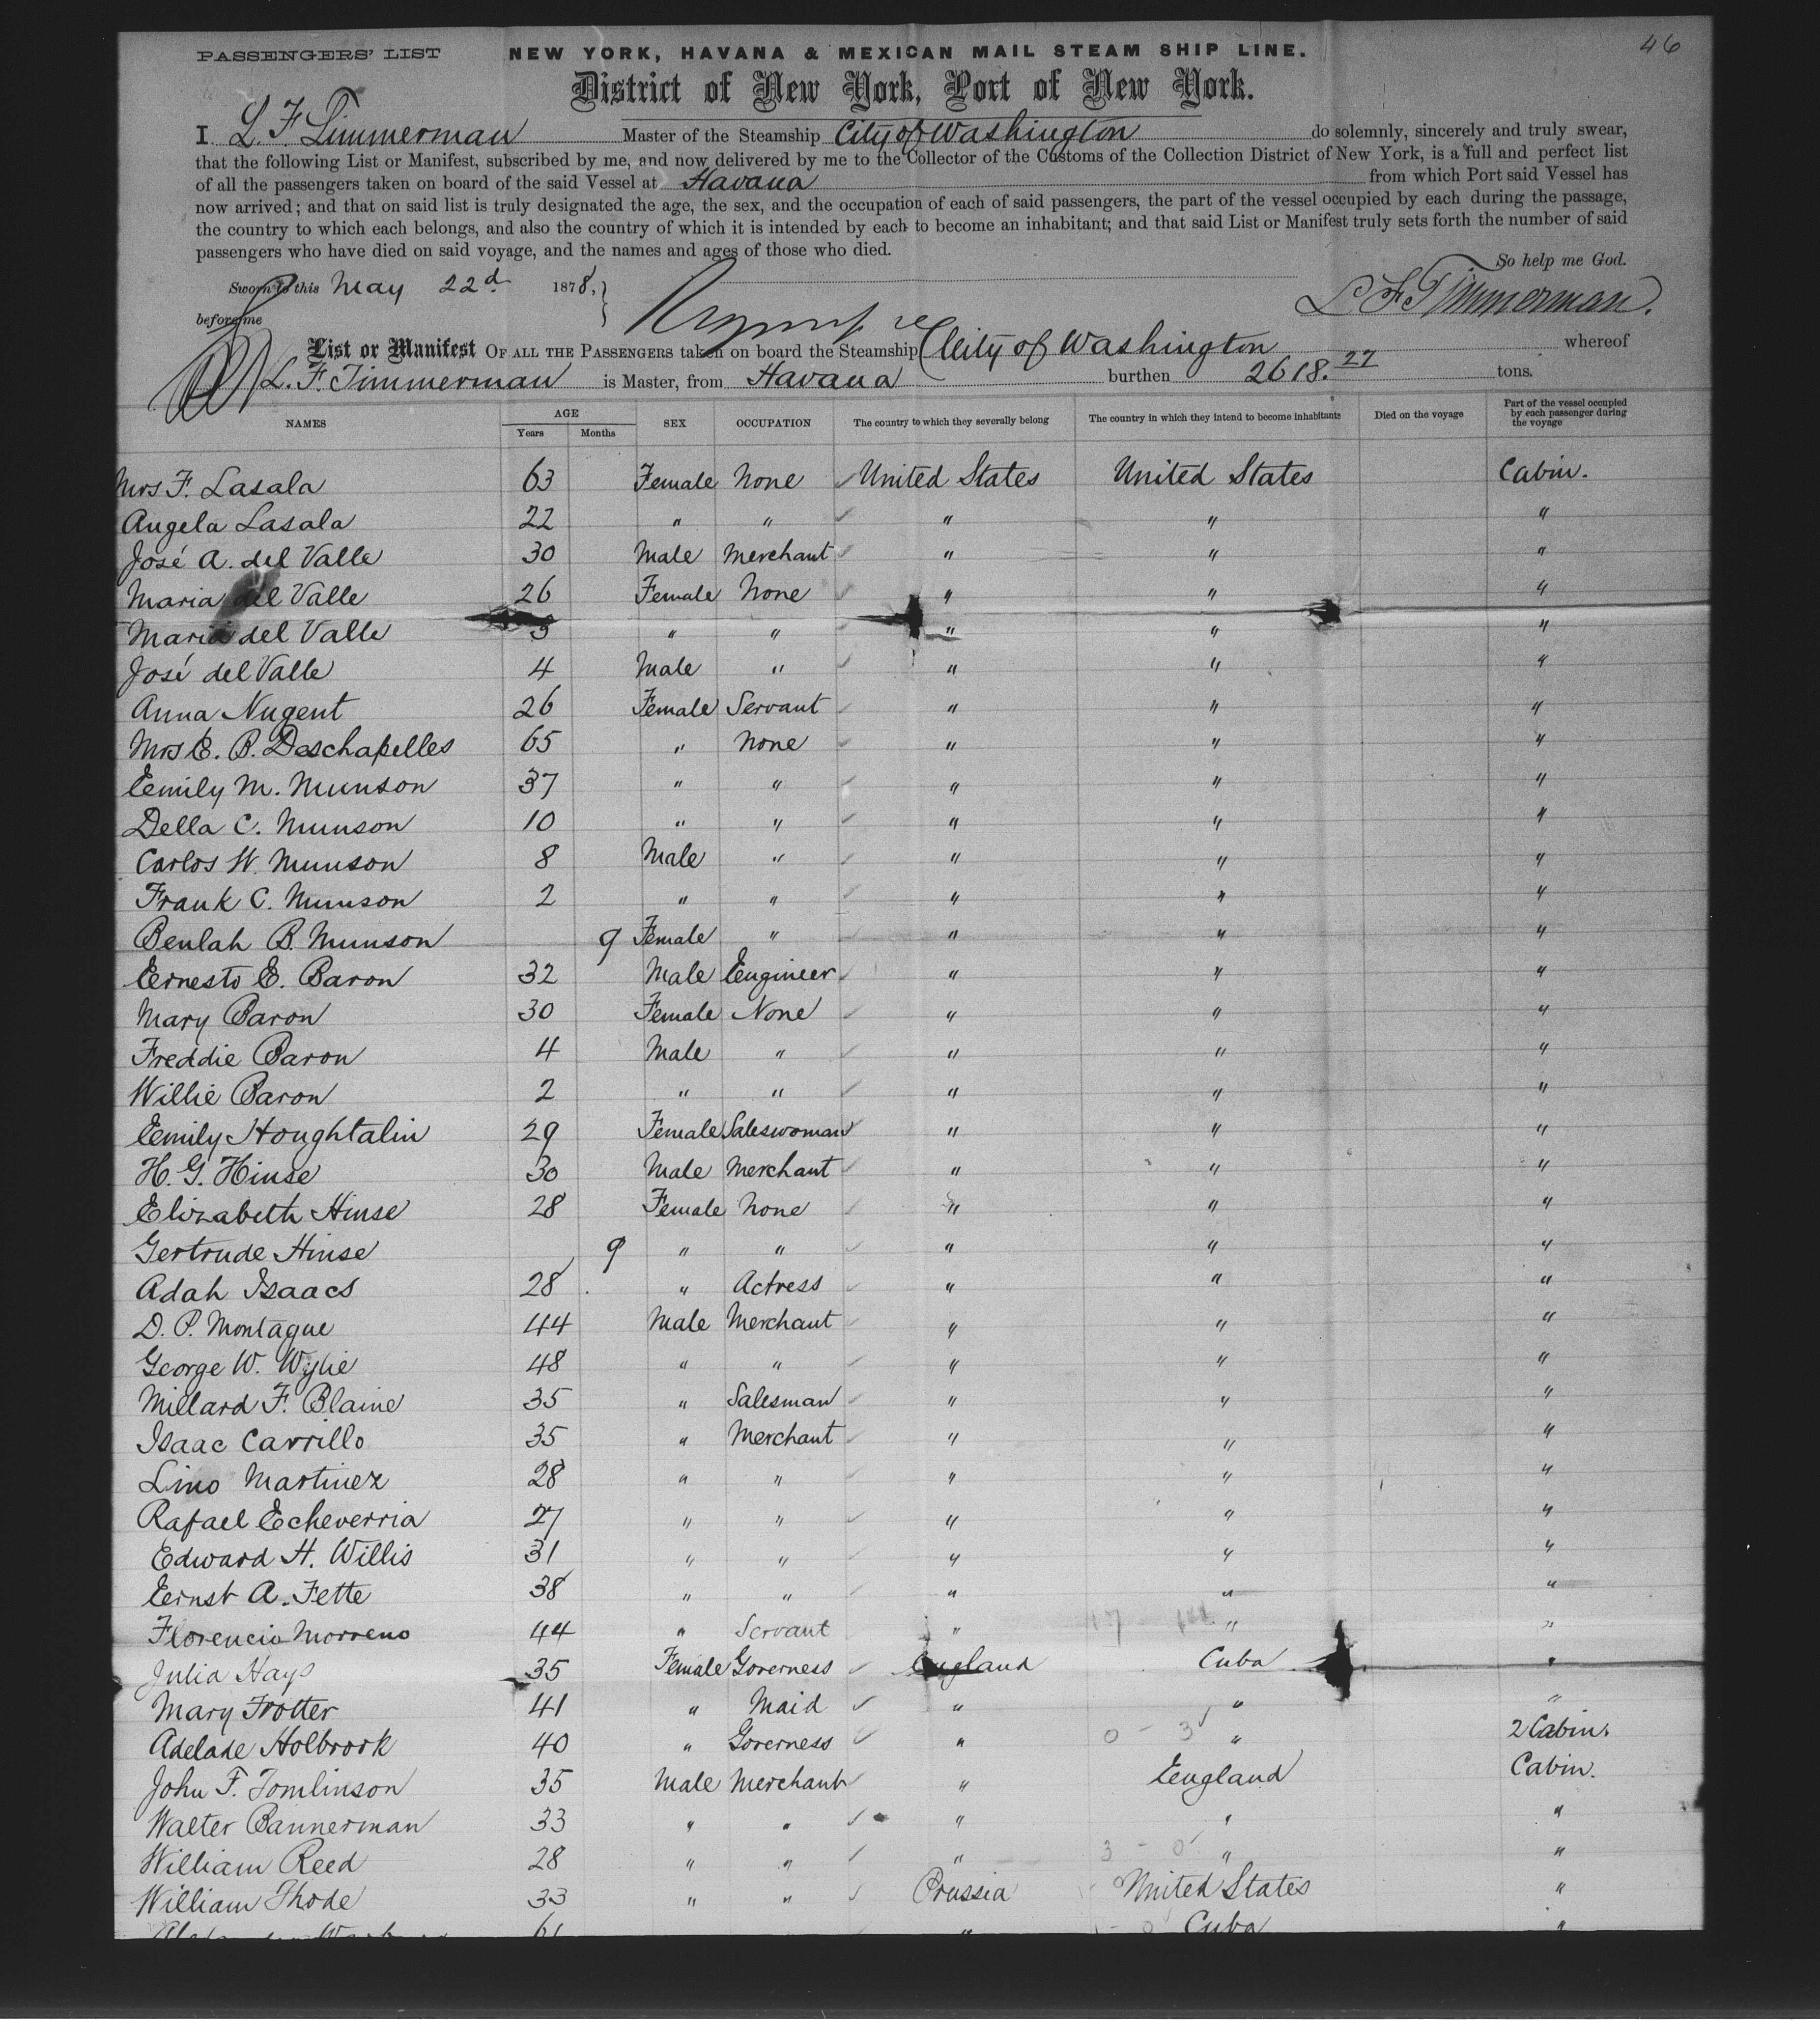 46
PASSENGERS' LIST NEW YORK, HAVANA & MEXICAN MAIL STEAM SHIP LINE.
District of New York, Port of New York.
I L. F. Timmerman Master of the Steamship City of Washington do solemnly, sincerely and truly swear,
that the following List or Manifest, subscribed by me, and now delivered by me to the Collector of the Customs of the Collection District of New York, is a full and perfect list
of all the passengers taken on board of the said Vessel at Havana from which Port said Vessel has
now arrived; and that on said list is truly designated the age, the sex, and the occupation of each of said passengers, the part of the vessel occupied by each during the passage,
the country to which each belongs, and also the country of which it is intended by each to become an inhabitant; and that said List or Manifest truly sets forth the number of said
passengers who have died on said voyage, and the names and ages of those who died.
So help me God.
Sworn to this May 22d 1878,
before me L F Timmerman.
List or Manifest OF ALL THE PASSENGERS taken on board the Steamship City of Washington whereof
L. F. Timmerman is Master, from Havana burthen 2618.27 tons.
NAMES AGE Years Months SEX OCCUPATION The country to which they severally belong The country in which they intend to become inhabitants Died on the voyage Part of the vessel occupied by each passenger during the voyage
Mrs F. Lasala 63 Female None United States United States Cabin.
Angela Lasala 22 " " " " "
José A. del Valle 30 Male Merchant " " "
Maria del Valle 26 Female None " " "
Maria del Valle 3 " " " " "
José del Valle 4 Male " " " "
Anna Nugent 26 Female Servant " " "
Mrs E. B. Deschapelles 65 " None " " "
Emily M. Munson 37 " " " " "
Della C. Munson 10 " " " " "
Carlos W. Munson 8 Male " " " "
Frank C. Munson 2 " " " " "
Beulah B. Munson 9 Female " " " "
Ernesto E. Baron 32 Male Engineer " " "
Mary Baron 30 Female None " " "
Freddie Baron 4 Male " " " "
Willie Baron 2 " " " " "
Emily Houghtalin 29 Female Saleswoman " " "
H. G. Hinse 30 Male Merchant " " "
Elizabeth Hinse 28 Female None " " "
Gertrude Hinse 9 " " " " "
Adah Isaacs 28 " Actress " " "
D. P. Montague 44 Male Merchant " " "
George W. Wylie 48 " " " " "
Millard F. Blaine 35 " Salesman " " "
Isaac Carrillo 35 " Merchant " " "
Lino Martinez 28 " " " " "
Rafael Echeverria 27 " " " " "
Edward H. Willis 31 " " " " "
Ernst A. Fette 38 " " " " "
Florencio Morreno 44 " Servant " " "
Julia Hays 35 Female Governess England Cuba "
Mary Trotter 41 " Maid " " "
Adelade Holbrook 40 " Governess " 0 - 3 " 2 Cabin.
John F. Tomlinson 35 Male Merchant " England Cabin.
Walter Bannerman 33 " " " " "
William Reed 28 " " " 3 - 0 " "
William Thode 33 " " Prussia United States "
61 " Cuba "